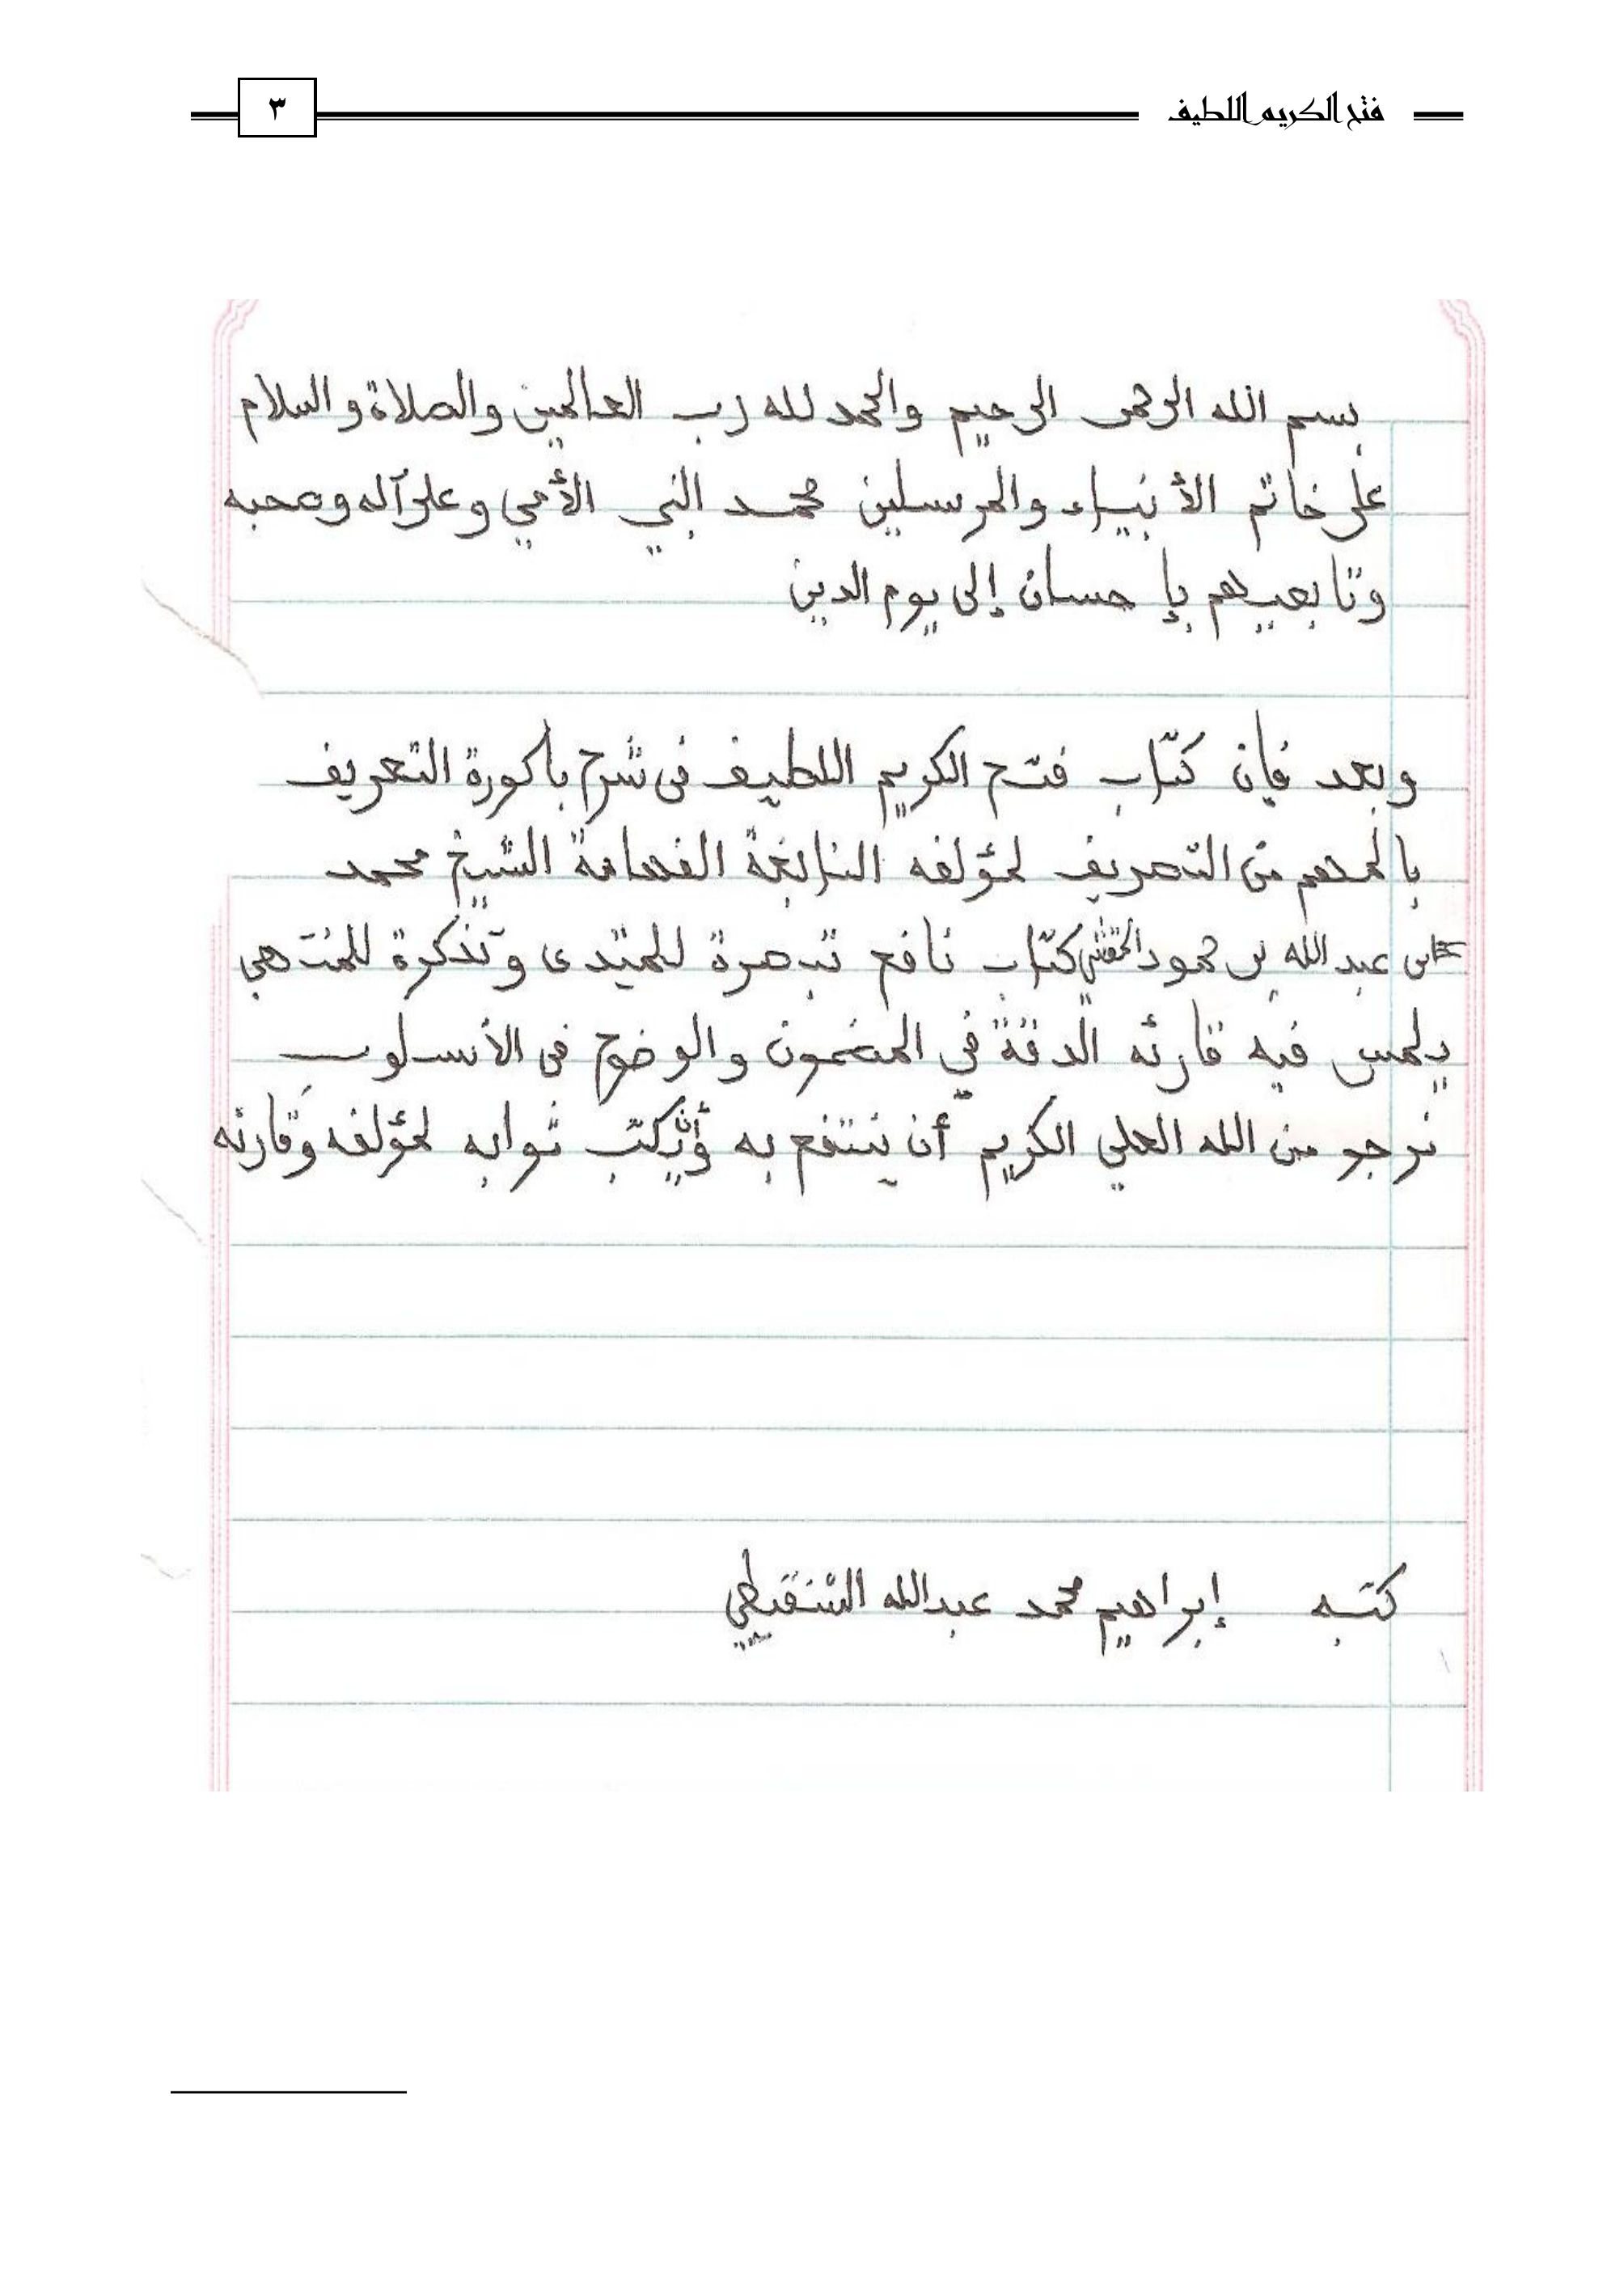 فتح الكريم اللطيف
٣
بسم الله الرحمن الرحيم والحمد لله رب العالمين والصلاة والسلام
على خاتم الأنبياء والمرسلين محمد النبي الأمي وعلى آله وصحبه
وتابعيهم بإحسان إلى يوم الدين
وبعد فإن كتاب فتح الكريم اللطيف فى شرح باكورة التعريف
بالمهم من التصريف لمؤلفه النابغة الفهامة الشيخ محمد
بن عبد الله بن محمود كتاب نافع تبصرة للمبتدى وتذكرة للمنتهي
يلمس فيه قارئه الدقة في المضمون والوضوح فى الأسلوب
نرجو من الله العلي الكريم أن ينتفع به وأن يكتب ثوابه لمؤلفه وقارئه
كتبه إبراهيم محمد عبدالله الشنقيطي